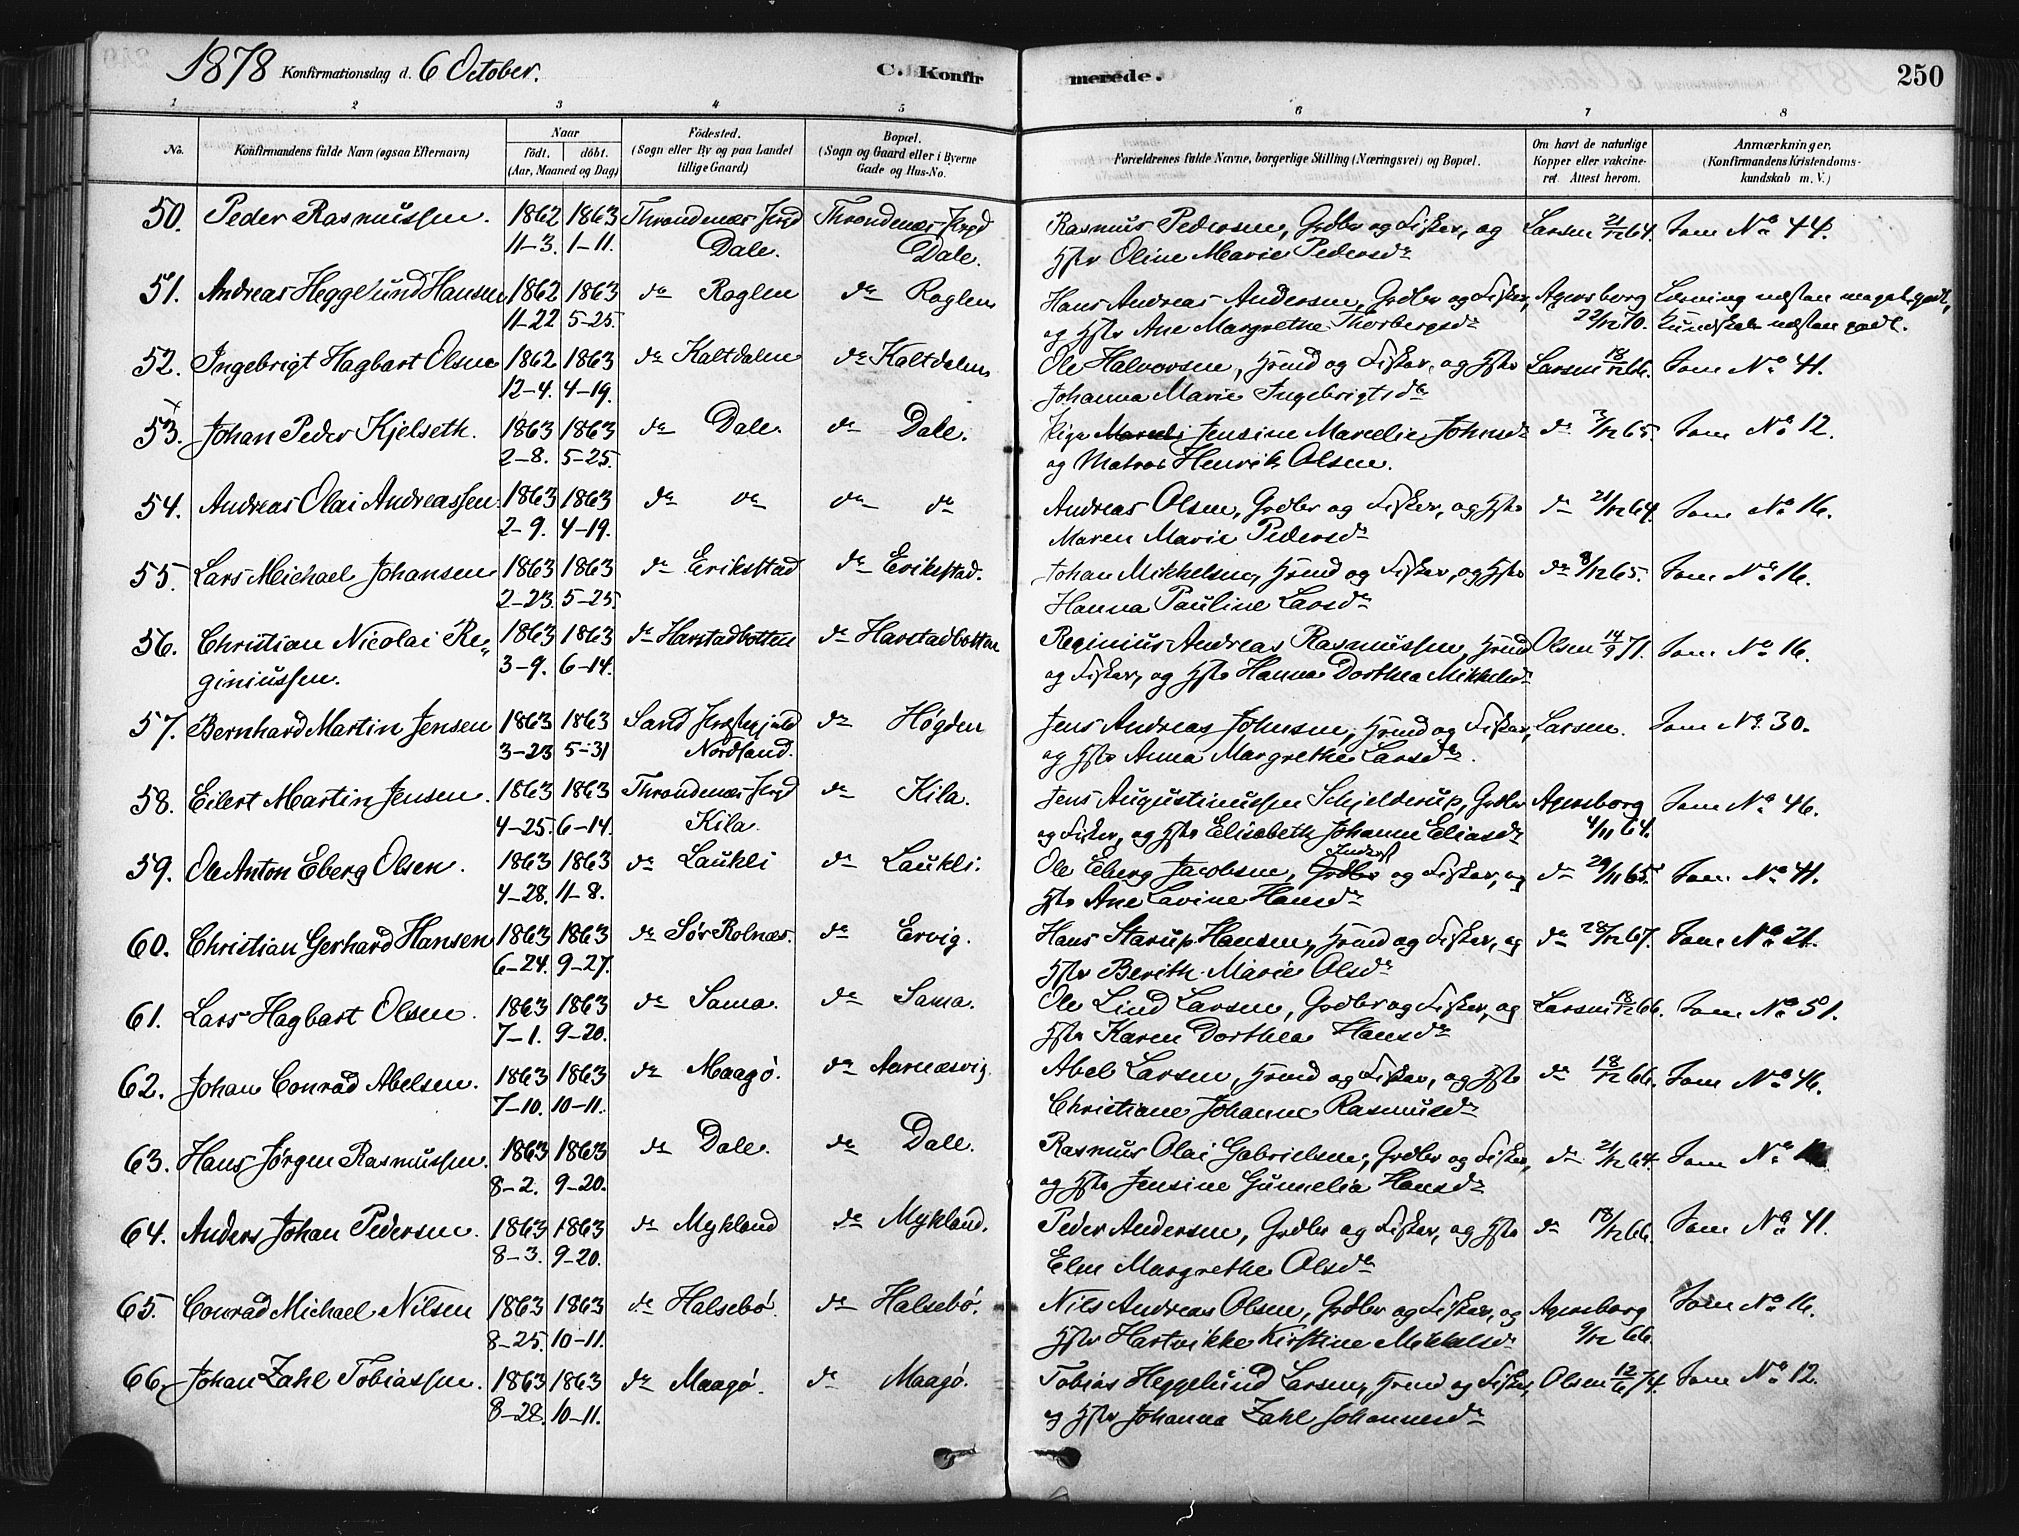 1878 Konfirmationsdag d. 6 October. C. Konfirmerede. 250
1 2 3 4 5 6 7 8
No. Konfirmandens fulde Navn (ogsaa Efternavn) Naar födt. döbt. (Aar, Maaned og Dag) Födested. (Sogn eller By og paa Landet tillige Gaard) Bopæl. (Sogn og Gaard eller i Byerne Gade og Hus-No. Forældrenes fulde Navne, borgerlige Stilling (Næringsvei) og Bopæl. Om havt de naturlige Kopper eller vakcineret. Attest herom. Anmærkninger. (Konfirmandens Kristendomskundskab m. V.)
50. Peder Rasmussen. 1862 1863 Throndenæs Dale. Throndenæs Dale. Rasmus Pedersen, Grdbr og Fisker, og Larsen 21/12 64. Som No 44.
11-3. 1-11. Hstr Oline Marie Pedersdr
51. Andreas Heggelund Hansen 1862 1863 do Roglen do Roglen Hans Andreas Andersen, Grdbr og Fisker, Agersborg Læsning næsten meget godt,
11-22 5-25. og Hstr Ane Margrethe Thorbergsdr 22/12 70. Kundskab næsten godt.
52. Ingebrigt Hagbart Olsen 1862 1863 do Kaltdalen do Kaltdalen Ole Halvorsen, Hmd og Fisker, og Hstr Larsen 18/12 66. Som No 41.
12-4. 4-19. Johanna Marie Ingebrigtsdr
53. Johan Peder Kjelseth. 1863 1863 do Dale. do Dale. Pige Jensine Marcelie Johnsdr do 3/12 65 Som No 12.
2-8. 5-25. og Matros Henrik Olsen.
54. Andreas Olai Andreassen 1863 1863 do do do do Andreas Olsen, Grdbr og Fisker, og Hstr do 21/12 64. Som No 16.
2-9. 4-19. Maren Marie Pedersdr
55. Lars Meichael Johansen 1863 1863 do Erikstad do Erikstad. Johan Mikkelsen, Hmd og Fisker, og Hstr do 8/12 65. Som No 16.
2-23. 5-25. Hanna Pauline Larsdr
56. Christian Nicolai Re- 1863 1863 do Harstadbotten do Harstadbotten Reginius Andreas Rasmussen, Hmd Olsen 14/9 71. Som No 16.
giniussen. 3-9. 6-14. og Fisker, og Hstr Hanna Dorthea Mikkelsdr
57. Bernhard Martin Jensen 1863 1863 Sand Præstegjeld do Högden Jens Andreas Johnsen, Hmd og Fisker, Larsen. Som No 30.
3-23 5-31 Nordland. og Hstr Anna Margrethe Larsdr.
58. Eilert Martin Jensen. 1863 1863 Throndenæs Kila. do Kila. Jens Augustinussen Schjelderup, Grdbr Agersborg Som No 46.
4-25. 6-14. og Fisker, og Hstr Elisabeth Johanne Eliasdr 4/11 64.
59. Ole Anton Eberg Olsen. 1863 1863 do Laukli do Laukli. Ole Eberg Jacobsen, Grdbr og Fisker, og do 29/11 65. Som No 41.
4-28. 11-8. Hstr Ane Lavine Hansdr
60. Christian Gerhard Hansen 1863 1863 do Sör Rolnæs. do Ervig. Hans Starup Hansen, Hmd og Fisker, og do 28/12 67. Som No 21.
6-24. 9-27. Hstr Berith Marie Olsdr
61. Lars Hagbart Olsen. 1863 1863 do Sama. do Sama. Ole Lind Larsen, Grdbr og Fisker, og Larsen 18/12 66. Som No 51.
7-1. 9-20. Hstr Karen Dorthea Hansdr
62. Johan Conrad Abelsen. 1863 1863 do Maagö. do Aarnæsvig. Abel Larsen, Hmd og Fisker, og Hstr do 18/12 66. Som No 46.
7-10. 10-11. Christiane Johanne Rasmusdr
63. Hans Jörgen Rasmussen. 1863 1863 do Dale. do Dale. Rasmus Olai Gabrielsen, Grdbr og Fisker, do 21/12 64. Som No
8-2. 9-20. og Hstr Jensine Gunnelia Hansdr
64. Anders Johan Pedersen. 1863 1863 do Mykland do Mykland. Peder Andersen, Grdbr og Fisker, og Hstr do 18/12 66. Som No 41.
8-3. 9-20. Elen Margrethe Olsdr
65. Conrad Michael Nilsen 1863 1863 do Halsebö. do Halsebö. Nils Andreas Olsen, Grdbr og Fisker, og Agersborg Som No 16.
8-25. 10-11. Hstr Hartvikke Kirstine Mikkelsdr 9/12 66.
66. Johan Zahl Tobiassen. 1863 1863 do Maagö. do Maagö. Tobias Heggelund Larsen, Hmd og Fisker, Olsen 12/6 74. Som No 12.
8-28. 10-11. og Hstr Johanna Zahl Johannesdr